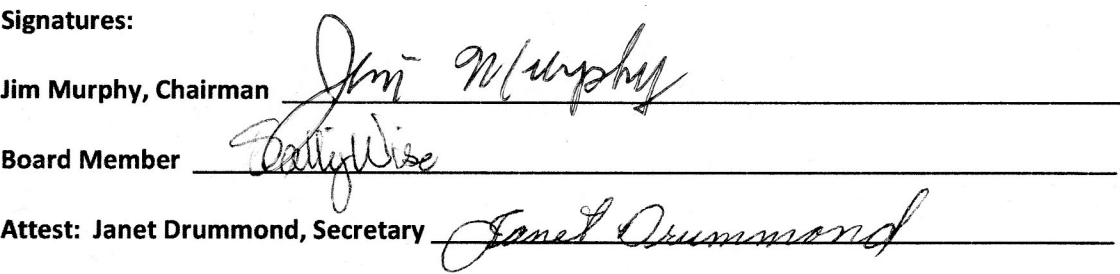 Signatures:
Jim Murphy, Chairman Jim Murphy
Board Member Wise
Attest: Janet Drummond, Secretary Janet Drummond